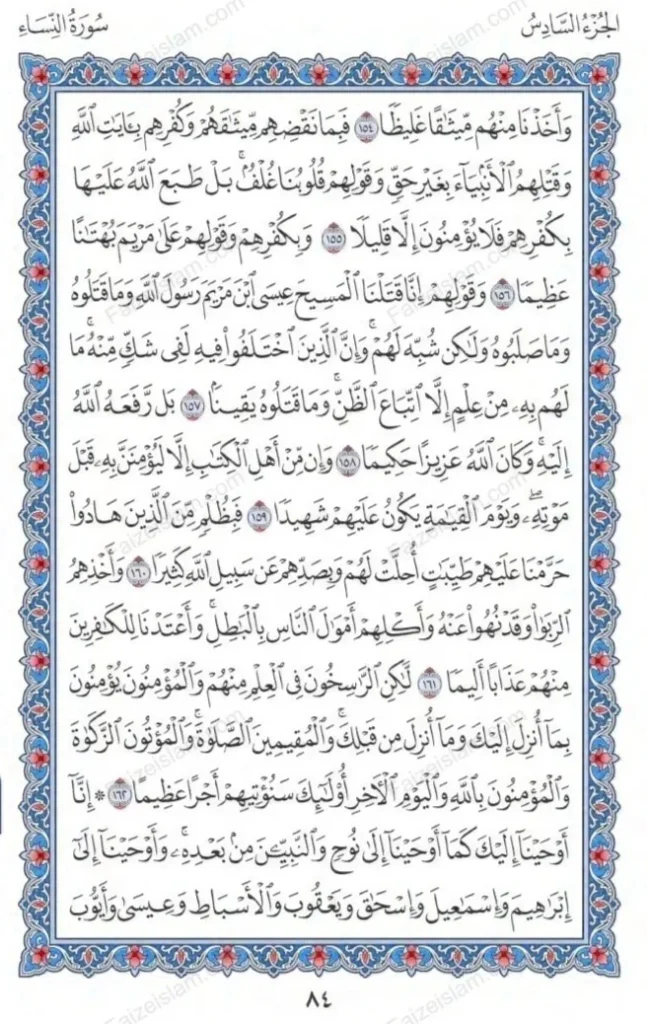 الجُزْءُ السَّادِسُ
سُورَةُ النِّسَاءِ
وَأَخَذْنَا مِنْهُم مِّيثَٰقًا غَلِيظًا ١٥٤ فَبِمَا نَقْضِهِم مِّيثَٰقَهُمْ وَكُفْرِهِم بِـَٔايَٰتِ ٱللَّهِ
وَقَتْلِهِمُ ٱلْأَنۢبِيَآءَ بِغَيْرِ حَقٍّ وَقَوْلِهِمْ قُلُوبُنَا غُلْفٌۢ ۚ بَلْ طَبَعَ ٱللَّهُ عَلَيْهَا
بِكُفْرِهِمْ فَلَا يُؤْمِنُونَ إِلَّا قَلِيلًا ١٥٥ وَبِكُفْرِهِمْ وَقَوْلِهِمْ عَلَىٰ مَرْيَمَ بُهْتَٰنًا
عَظِيمًا ١٥٦ وَقَوْلِهِمْ إِنَّا قَتَلْنَا ٱلْمَسِيحَ عِيسَى ٱبْنَ مَرْيَمَ رَسُولَ ٱللَّهِ وَمَا قَتَلُوهُ
وَمَا صَلَبُوهُ وَلَٰكِن شُبِّهَ لَهُمْ ۚ وَإِنَّ ٱلَّذِينَ ٱخْتَلَفُوا۟ فِيهِ لَفِى شَكٍّ مِّنْهُ ۚ مَا
لَهُم بِهِۦ مِنْ عِلْمٍ إِلَّا ٱتِّبَاعَ ٱلظَّنِّ ۚ وَمَا قَتَلُوهُ يَقِينًۢا ١٥٧ بَل رَّفَعَهُ ٱللَّهُ
إِلَيْهِ ۚ وَكَانَ ٱللَّهُ عَزِيزًا حَكِيمًا ١٥٨ وَإِن مِّنْ أَهْلِ ٱلْكِتَٰبِ إِلَّا لَيُؤْمِنَنَّ بِهِۦ قَبْلَ
مَوْتِهِۦ ۖ وَيَوْمَ ٱلْقِيَٰمَةِ يَكُونُ عَلَيْهِمْ شَهِيدًا ١٥٩ فَبِظُلْمٍ مِّنَ ٱلَّذِينَ هَادُوا۟
حَرَّمْنَا عَلَيْهِمْ طَيِّبَٰتٍ أُحِلَّتْ لَهُمْ وَبِصَدِّهِمْ عَن سَبِيلِ ٱللَّهِ كَثِيرًا ١٦٠ وَأَخْذِهِمُ
ٱلرِّبَوٰا۟ وَقَدْ نُهُوا۟ عَنْهُ وَأَكْلِهِمْ أَمْوَٰلَ ٱلنَّاسِ بِٱلْبَٰطِلِ ۚ وَأَعْتَدْنَا لِلْكَٰفِرِينَ
مِنْهُمْ عَذَابًا أَلِيمًا ١٦١ لَّٰكِنِ ٱلرَّٰسِخُونَ فِى ٱلْعِلْمِ مِنْهُمْ وَٱلْمُؤْمِنُونَ يُؤْمِنُونَ
بِمَآ أُنزِلَ إِلَيْكَ وَمَآ أُنزِلَ مِن قَبْلِكَ ۚ وَٱلْمُقِيمِينَ ٱلصَّلَوٰةَ ۚ وَٱلْمُؤْتُونَ ٱلزَّكَوٰةَ
وَٱلْمُؤْمِنُونَ بِٱللَّهِ وَٱلْيَوْمِ ٱلْءَاخِرِ أُو۟لَٰٓئِكَ سَنُؤْتِيهِمْ أَجْرًا عَظِيمًا ١٦٢ * إِنَّآ
أَوْحَيْنَآ إِلَيْكَ كَمَآ أَوْحَيْنَآ إِلَىٰ نُوحٍ وَٱلنَّبِيِّـۧنَ مِنۢ بَعْدِهِۦ ۚ وَأَوْحَيْنَآ إِلَىٰٓ
إِبْرَٰهِيمَ وَإِسْمَٰعِيلَ وَإِسْحَٰقَ وَيَعْقُوبَ وَٱلْأَسْبَاطِ وَعِيسَىٰ وَأَيُّوبَ
٨٤
Faizeislam.com